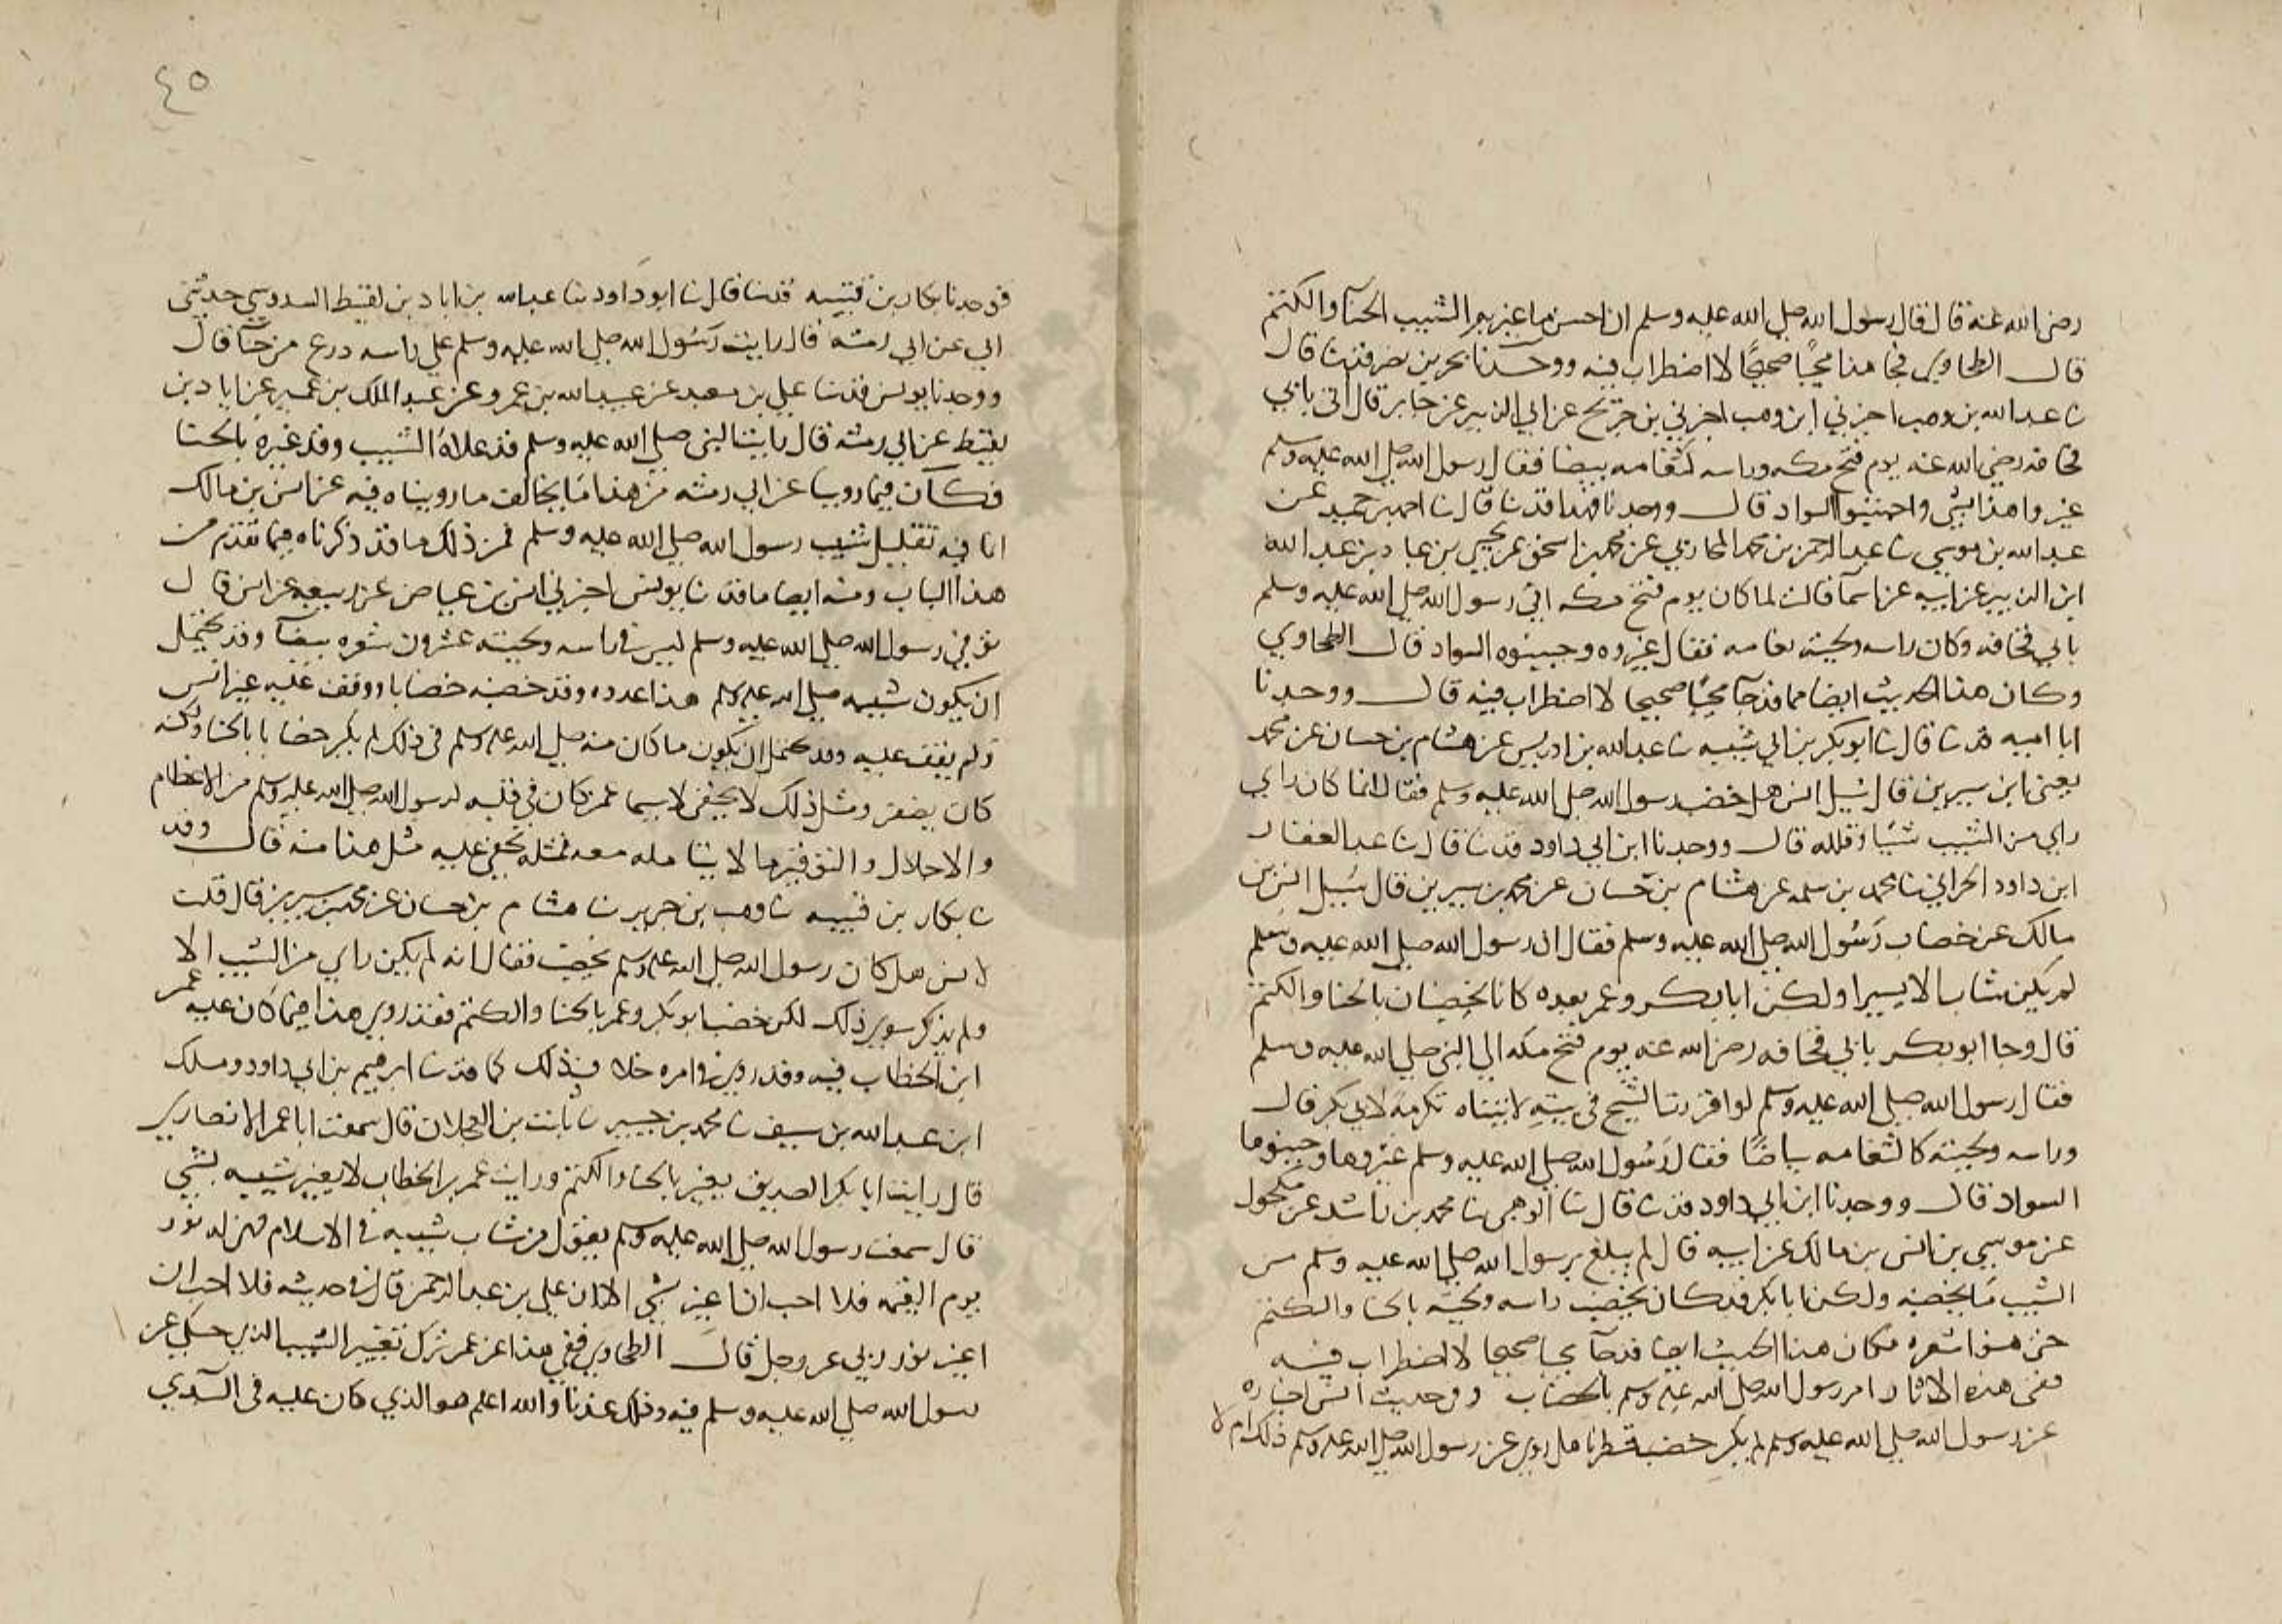 رضي الله عنه قال قال رسول الله صلي الله عليه وسلم ان احسن ما غير به الشيب الحناء والكتم
قال الطحاوي فجا هذا مجيا صحيحا لا اضطراب فيه ووجدنا بحر بن نصر قد ثنا قال
ثنا عبد الله بن وهب اخبرني ابن وهب اخبرني بن جريج عن ابي الزبير عن جابر قال اتي بابي
قحافه رضي الله عنه يوم فتح مكه وراسه كثغامه بيضا فقال رسول الله صلي الله عليه وسلم
غيروا هذا بشي واجتنبوا السواد قال ووجدنا فهدا قد ثنا قال ثنا احمد بن حميد عن
عبد الله بن موسي ثنا عبد الرحمن بن محمد المحاربي عن محمد بن اسحق عن يحيي بن عباد بن عبد الله
ابن الزبير عن ابيه عن اسما قالت لما كان يوم فتح مكه اتي رسول الله صلي الله عليه وسلم
بابي قحافه وكان راسه ولحيته ثغامه فقال غيروه وجنبوه السواد قال الطحاوي
وكان هذا الحديث ايضا مما قد جآ مجيا صحيحا لا اضطراب فيه قال ووجدنا
ابا اميه قد ثنا قال ثنا ابو بكر بن ابي شيبه ثنا عبد الله بن ادريس عن هشام بن حسان عن محمد
يعني ابن سيرين قال سيل انس هل خضب رسول الله صلي الله عليه وسلم فقال انما كان راي
راي من الشيب شيا وقلله قال ووجدنا ابن ابي داود قد ثنا قال ثنا عبد الغفار
ابن داود الحراني ثنا محمد بن سلمه عن هشام بن حسان عن محمد بن سيرين قال سيل انس بن
مالك عن خضاب رسول الله صلي الله عليه وسلم فقال ان رسول الله صلي الله عليه وسلم
لم يكن شاب الا يسيرا ولكن ابا بكر وعمر بعده كانا يخضبان بالحنا والكتم
قال وجا ابو بكر بابي قحافه رضي الله عنه يوم فتح مكه الي النبي صلي الله عليه وسلم
فقال رسول الله صلي الله عليه وسلم لو اقررت الشيخ في بيته لاتيناه تكرمة لابي بكر قال
وراسه ولحيته كالثغامه بياضا فقال رسول الله صلي الله عليه وسلم غيروها وجنبوها
السواد قال ووجدنا ابن ابي داود قد ثنا قال ثنا الوهبي ثنا محمد بن راشد عن مكحول
عن موسي بن انس بن مالك عن ابيه قال لم يبلغ برسول الله صلي الله عليه وسلم من
الشيب ما يخضبه ولكن ابا بكر قد كان يخضب راسه ولحيته بالحنا والكتم
حتي شعره فكان هذا الحديث ايضا قد جآ مجيا صحيحا لا اضطراب فيه
ففي هذه الاثار امر رسول الله صلي الله عليه وسلم بالخضاب وفي حديث انس اخباره
عن رسول الله صلي الله عليه وسلم لم يكن خضب فنظرنا هل روي عن رسول الله صلي الله عليه وسلم ذلك ام لا
٤٥
فوجدنا بكار بن قتيبه قد ثنا قال ثنا ابو داود ثنا عبد الله بن اياد بن لقيط السدوسي حدثني
ابي عن ابي رمثه قال رايت رسول الله صلي الله عليه وسلم علي راسه درع من حنآ قال
ووجدنا يونس قد ثنا علي بن معبد عن عبيد الله بن عمرو عن عبد الملك بن عمير عن اياد بن
لقيط عن ابي رمثه قال رايت النبي صلي الله عليه وسلم قد علاه الشيب وقد غيره بالحنا
فكان فيما روينا عن ابي رمثه من هذا ما يخالف ما رويناه فيه عن انس بن مالك
انا فيه تقليل شيب رسول الله صلي الله عليه وسلم فمن ذلك ما قد ذكرناه فيما تقدم من
هذا الباب ومنه ايضا ما قد ثنا يونس اخبرني انس بن عياض عن ربيعه عن انس قال
توفي رسول الله صلي الله عليه وسلم ليس في راسه ولحيته عشرون شعره بيضآ وقد يحتمل
ان يكون شيبه صلي الله عليه وسلم هذا عدده وقد خضبه خضابا ووقف عليه غير انس
ولم يقف عليه وقد يحتمل ان يكون ما كان منه صلي الله عليه وسلم في ذلك لم يكن خضابا بالحنا ولكنه
كان يصفر ومثل ذلك لا يخفي لا سيما عمن كان في قلبه لرسول الله صلي الله عليه وسلم من الاعظام
والاجلال والتوقير ما لا يتامله معه فمثله يخفي عليه مثل هذا منه قال وقد
ثنا بكار بن قتيبه ثنا وهب بن جرير ثنا هشام بن حسان عن محمد بن سيرين قال قلت
لانس هل كان رسول الله صلي الله عليه وسلم يخضب فقال انه لم يكن راي من الشيب الا
ولم يذكر سوي ذلك لكن خضب ابو بكر وعمر بالحنا والكتم فقد روي هذا فيما كان عليه عمر
ابن الخطاب فيه وقد روي في امره خلاف ذلك كما قد ثنا ابرهيم بن ابي داود وملك
ابن عبد الله بن سيف ثنا محمد بن حميير ثنا ثابت بن العجلان قال سمعت ابا عمر الانصاري
قال رايت ابا بكر الصديق يغير بالحنا والكتم ورايت عمر بن الخطاب لا يغير شيبه بشي
قال سمعت رسول الله صلي الله عليه وسلم يقول من شاب شيبه في الاسلام فهي له نور
يوم القيمه فلا احب ان اغير شيبي الا ان علي بن عبد الرحمن قال في حديثه فلا احب ان
اغير نور ربي عز وجل قال الطحاوي ففي هذا عن عمر ترك تغيير الشيب الذي حكي عن
رسول الله صلي الله عليه وسلم فيه وذلك عندنا والله اعلم هو الذي كان عليه في البدي